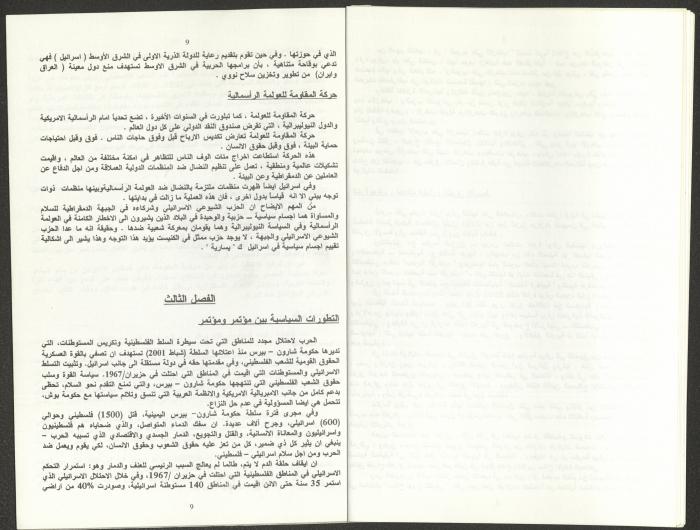 ٩
الذي في حوزتها . وفي حين تقوم بتقديم رعاية للدولة الذرية الاولى في الشرق الأوسط ( اسرائيل ) فهي
تدعي بوقاحة متناهية ، بأن برامجها الحربية في الشرق الاوسط تستهدف منع دول معينة ( العراق
وايران) من تطوير وتخزين سلاح نووي .
حركة المقاومة للعولمة الرأسمالية
حركة المقاومة للعولمة ، كما تبلورت في السنوات الأخيرة ، تضع تحدياً امام الرأسمالية الامريكية
والدول النيوليبرالية ، التي تفرض صندوق النقد الدولي على كل دول العالم .
حركة المقاومة للعولمة تعارض تكديس الارباح قبل وفوق حاجات الناس . فوق وقبل احتياجات
حماية البيئة ، فوق وقبل حقوق الانسان .
هذه الحركة استطاعت اخراج مئات الوف الناس للتظاهر في امكنة مختلفة من العالم ، واقيمت
تشكيلات عالمية ومنطقية ، تعمل على تنظيم النضال ضد المنظمات الدولية العملاقة ومن اجل الدفاع عن
العاملين عن الدمقراطية وعن البيئة .
وفي اسرائيل ايضاً ظهرت منظمات ملتزمة بالنضال ضد العولمة الرأسماليةوبينها منظمات ذوات
توجه بيئي الا انه قياساً بدول اخرى ، فان هذه العملية ما زالت في بدايتها .
من المهم الايضاح ان الحزب الشيوعي الاسرائيلي وشركاءه في الجبهة الدمقراطية للسلام
والمساواة هما اجسام سياسية – حزبية والوحيدة في البلاد الذين يشيرون الى الاخطار الكامنة في العولمة
الرأسمالية وفي السياسة النيوليبرالية وهما يقومان بمعركة شعبية ضدها . وحقيقة انه ما عدا الحزب
الشيوعي الاسرائيلي والجبهة ، لا يوجد حزب ممثل في الكنيست يؤيد هذا التوجه وهذا يشير الى اشكالية
تقييم اجسام سياسية في اسرائيل ك " يسارية " .
الفصل الثالث
التطورات السياسية بين مؤتمر ومؤتمر
الحرب لاحتلال مجدد للمناطق التي تحت سيطرة السلط الفلسطينية وتكريس المستوطنات، التي
تديرها حكومة شارون – بيرس منذ اعتلائها السلطة (شباط 2001) تستهدف ان تصفي بالقوة العسكرية
الحقوق القومية للشعب الفلسطيني، وفي مقدمتها حقه في دولة مستقلة الى جانب اسرائيل. وتثبيت التسلط
الاسرائيلي والمستوطنات التي اقيمت في المناطق التي احتلت في حزيران/1967. سياسة القوة وسلب
حقوق الشعب الفلسطيني التي تنتهجها حكومة شارون – بيرس، والتي تمنع التقدم نحو السلام، تحظى
بدعم كامل من جانب الامبريالية الامريكية والانظمة العربية التي تنسق وتلائم سياستها مع حكومة بوش،
تتحمل هي ايضا المسؤولية في عدم حل النزاع.
وفي مجرى فترة سلطة حكومة شارون- بيرس اليمينية، قتل (1500) فلسطيني وحوالي
(600) اسرائيلي، وجرح آلاف عديدة. ان سفك الدماء المتواصل، والذي ضحاياه هم فلسطينيون
واسرائيليون والمعاناة الانسانية، والقتل والتجويع، الدمار الجسدي والاقتصادي الذي تسببه الحرب –
ينبغي ان يثير كل ذي ضمير، كل من تعز عليه حقوق الشعوب وحقوق الانسان، لكي يقوم ويعمل ضد
الحرب ومن اجل سلام اسرائيلي – فلسطيني.
ان ايقاف حلقة الدم لا يتم، طالما لم يعالج السبب الرئيسي للعنف والدمار وهو: استمرار التحكم
الاسرائيلي في المناطق الفلسطينية التي احتلت في حزيران /1967، وفي خلال الاحتلال الاسرائيلي الذي
استمر 35 سنة حتى الآن اقيمت في المناطق 140 مستوطنة اسرائيلية، وصودرت 40% من اراضي
٩